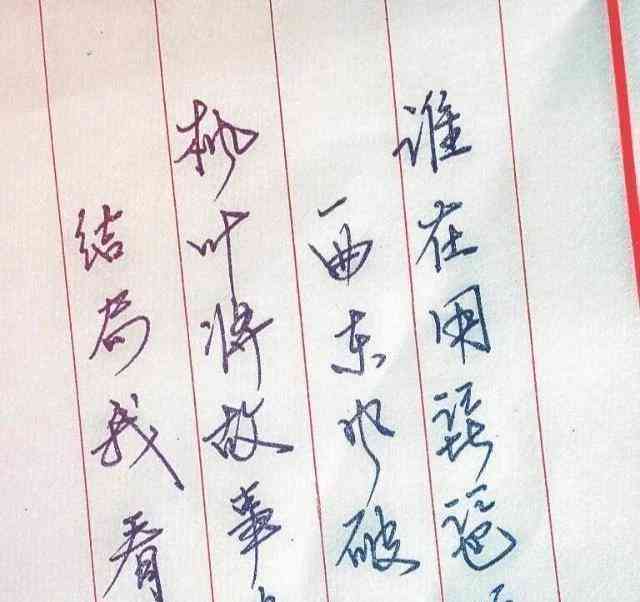 谁在用琵琶
一曲东风破
枫叶将故事
结局我看